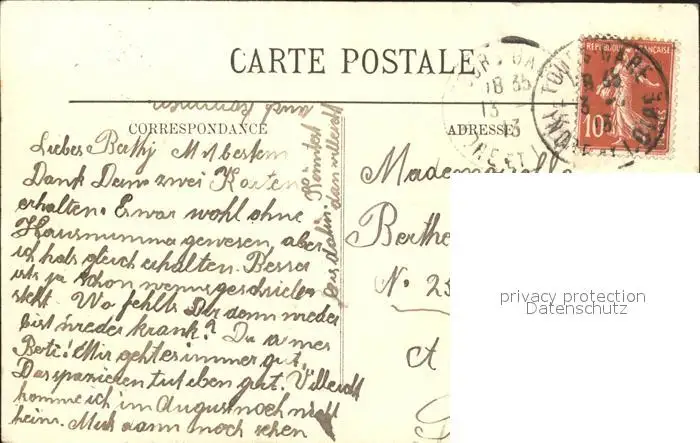 CARTE POSTALE
CORRESPONDANCE
ADRESSE
REPUBLIQUE FRANÇAISE
10
TOURS GARE
18 35
13
INDRE ET
Liebes Berthy M bestem
Dank Deine zwei Karten
erhalten. Es war wohl ohne
Hausnummer gewesen, aber
ich habs gleich erhalten. Besser
ists ja schon wenns geschrieben
steht. Wo fehlts Dir denn wieder
bist wieder krank? Du armes
Berti! Mir geht es immer gut.
Das spazieren tut eben gut. Villeicht
komme ich im August noch nicht
heim. Muß dann noch sehen
bis dahin. Könntest
dann villeicht
und kommen
Mademoiselle
Berthe
N° 25
A
privacy protection
Datenschutz